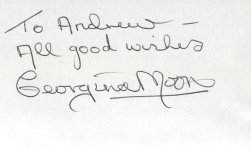 To Andrew –
All good wishes
Georgina Moon